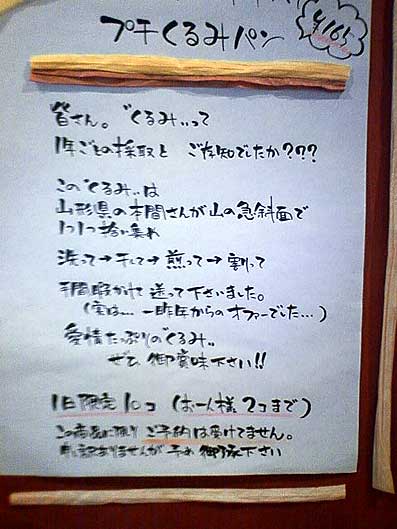 プチくるみパン
¥165
皆さん。〝くるみ〟って
1年ごとの採取と ご存知でしたか???
この〝くるみ〟は
山形県の本間さんが山の急斜面で
1つ1つ拾い集め
洗って→干して→煎って→割って
手間暇かけて 送って下さいました。
(実は… 一昨年からのオファーでした…)
愛情たっぷりの〝くるみ〟
ぜひ 御賞味下さい!!
1日限定10コ (お一人様 2コまで)
この商品に限り ご予約は受けてません。
申し訳ありませんが 予め 御了承下さい